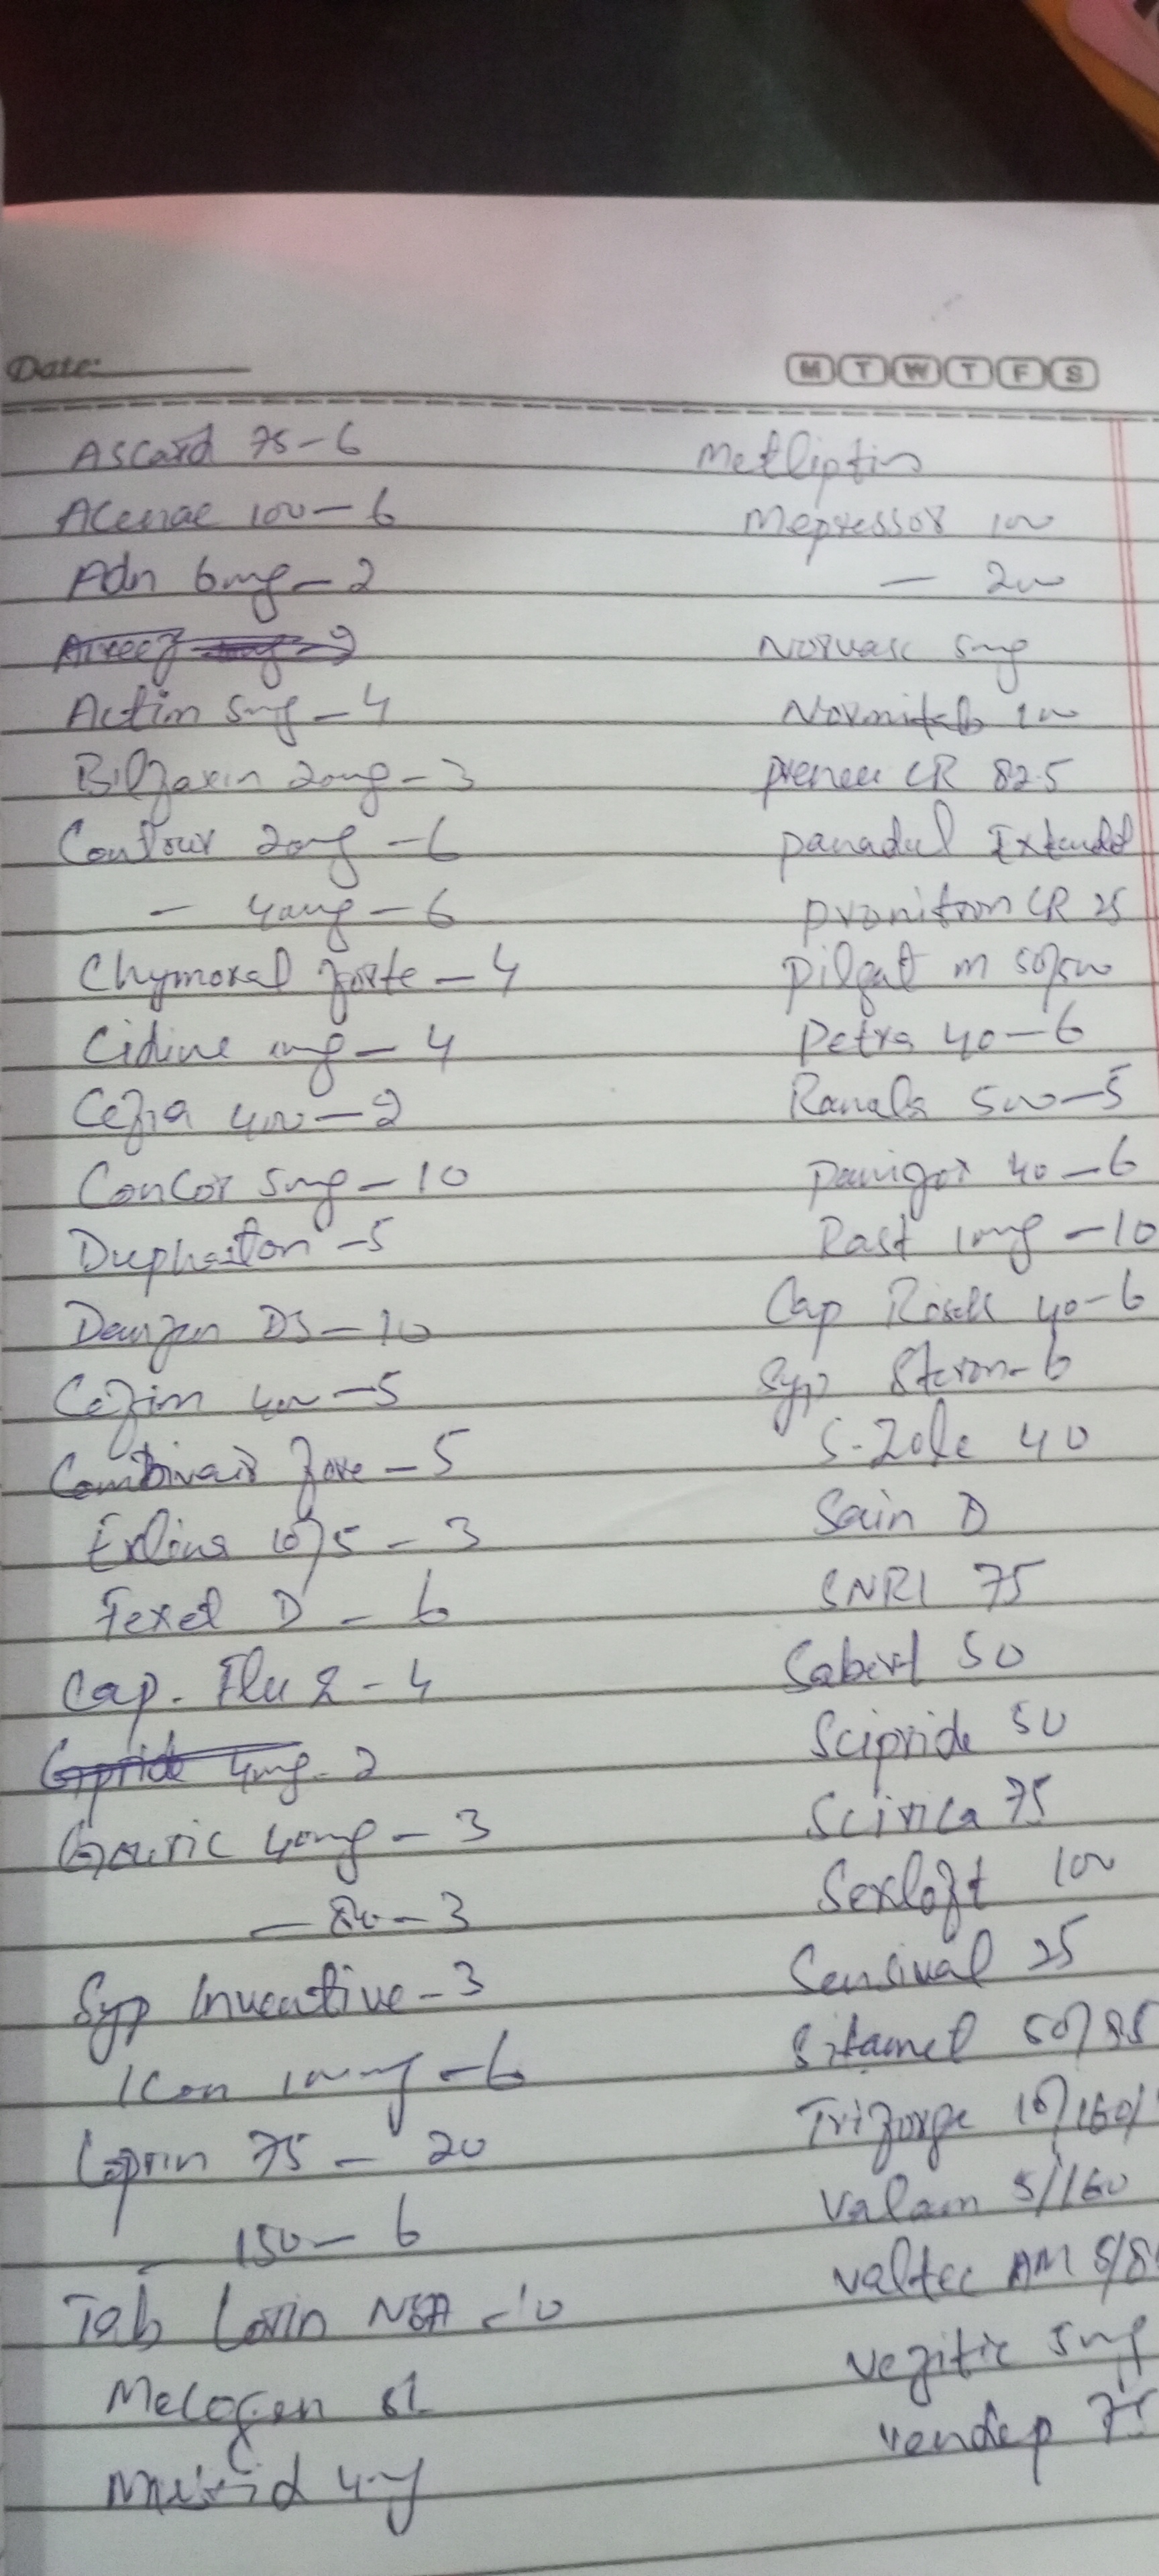 Date:
M T W T F S
Ascard 75-6
Acenac 100-6
Adn 6mg-2
Actim 5mg-4
Bilzaxin 20mg-3
Contour 20mg-6
- 40mg-6
Chymoral forte-4
Cidine 1mg-4
Cezia 400-2
Concor 5mg-10
Duphaston-5
Danzen DS-10
Cefim 400-5
Combivair Fore-5
Erlina 10/5-3
Fexet D-6
Cap. Flu 2-4
4mg-2
Gouric 40mg-3
- 80-3
Syp Inventive-3
Icon 100mg-6
Loprin 75-20
- 150-6
Tab Lorin NSA-10
4mg
Metliptin
Mepressor 100
- 200
Norvasc 5mg
Normitab 100
CR 82.5
panadol Extend
CR 25
pilget m 50/500
Petra 40-6
Ranola 500-5
40-6
Rast 1mg-10
Cap Risek 40-6
Syp 6
S-Zole 40
Sain D
SNRI 75
50
Scipride 50
Scirica 75
100
Sensival 25
Sitamet 50/
Triforge 10/160/
Valam 5/160
Valtec AM 5/8
5mg
vendep 75